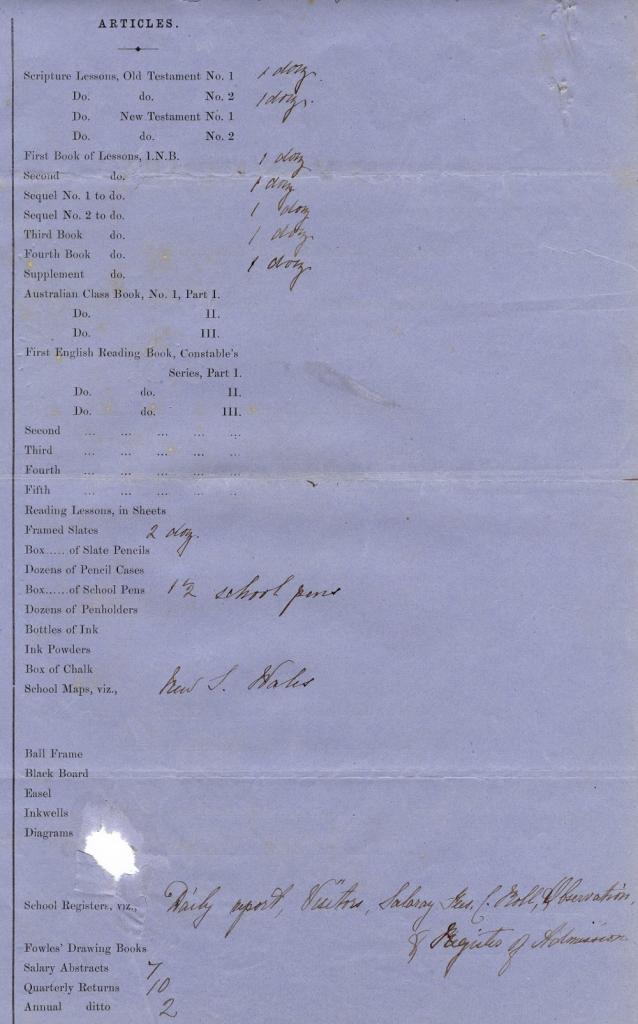 ARTICLES.
Scripture Lessons, Old Testament No. 1 1 doz.
Do. do. No. 2 1 doz.
Do. New Testament No. 1
Do. do. No. 2
First Book of Lessons, I.N.B. 1 doz
Second do. 1 doz
Sequel No. 1 to do.
Sequel No. 2 to do. 1 doz
Third Book do. 1 doz.
Fourth Book do. 1 doz
Supplement do.
Australian Class Book, No. 1, Part I.
Do. II.
Do. III.
First English Reading Book, Constable's
Series, Part I.
Do. do. II.
Do. do. III.
Second ... ... ... ... ...
Third ... ... ... ... ...
Fourth ... ... ... ... ...
Fifth ... ... ... ... ...
Reading Lessons, in Sheets
Framed Slates 2 doz.
Box..... of Slate Pencils
Dozens of Pencil Cases
Box......of School Pens 12 school pens
Dozens of Penholders
Bottles of Ink
Ink Powders
Box of Chalk
School Maps, viz., New S. Wales
Ball Frame
Black Board
Easel
Inkwells
Diagrams
School Registers, viz., Daily report, Visitors, Salaray C. Roll, Observation,
& Register of Admission
Fowles' Drawing Books
Salary Abstracts 7
Quarterly Returns 10
Annual ditto 2